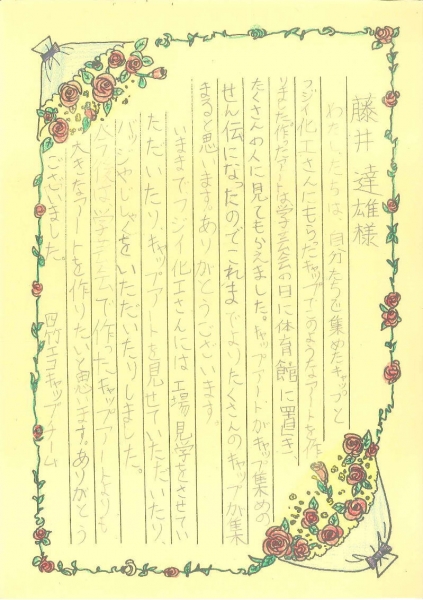 藤井 達雄様
わたしたちは、自分たちで集めたキャップと
フジイ化工さんにもらったキャップでこのようなアートを作
りました。作ったアートは学芸会の日に体育館に置き、
たくさんの人に見てもらえました。キャップアートがキャップ集めの
せん伝になったのでこれまでよりたくさんのキャップが集
まると思います。ありがとうございます。
いままでフジイ化工さんには工場見学をさせてい
ただいたり、キャップアートを見せていただいたり、
バッジやししゃくをいただいたりしました。
今度は学芸会で作ったキャップアートよりも
大きなアートを作りたいと思います。ありがとう
ございました。
四竹エコキャップチーム